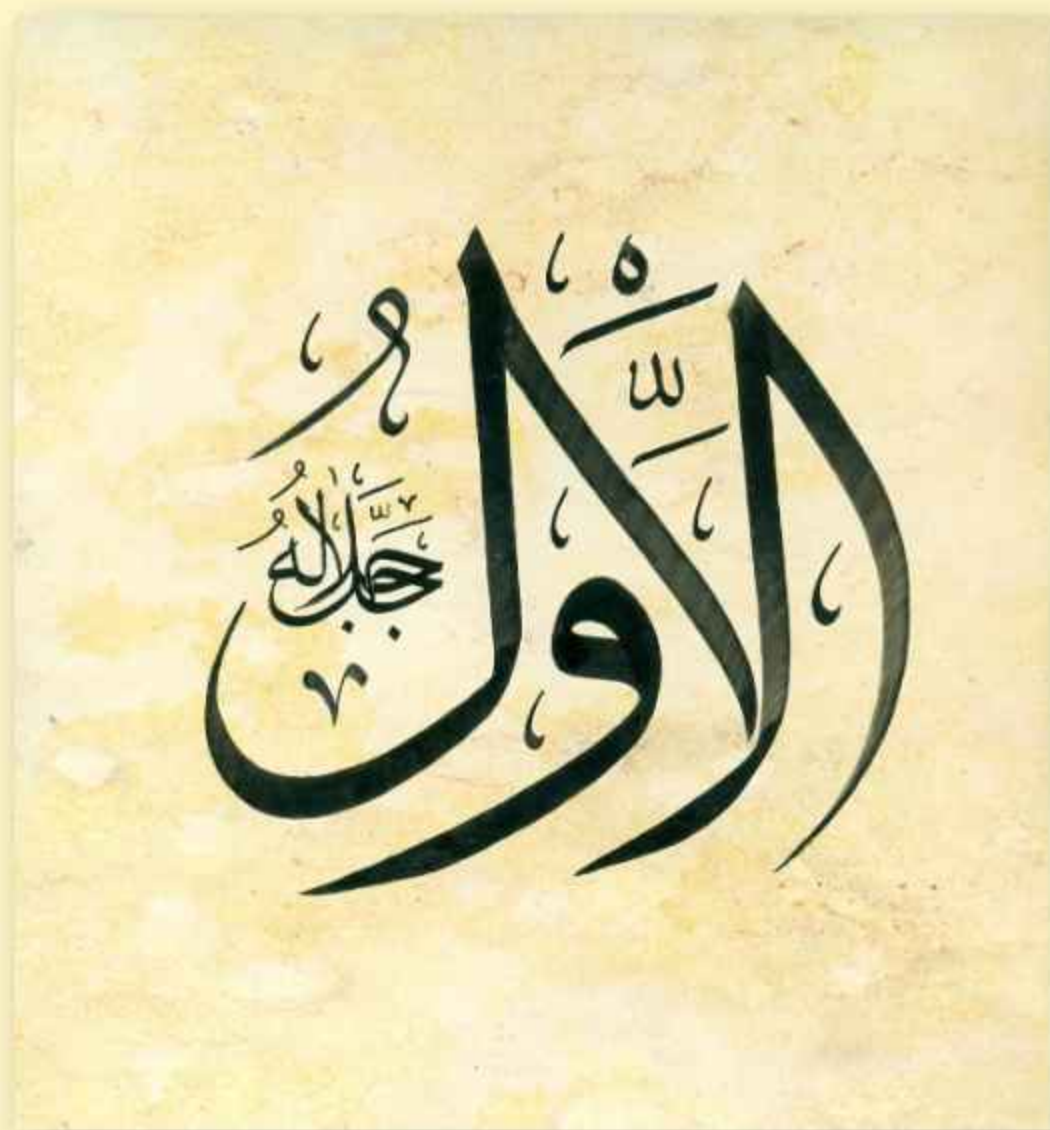 الْأَوَّلُ
جَلَّ جَلَالُهُ